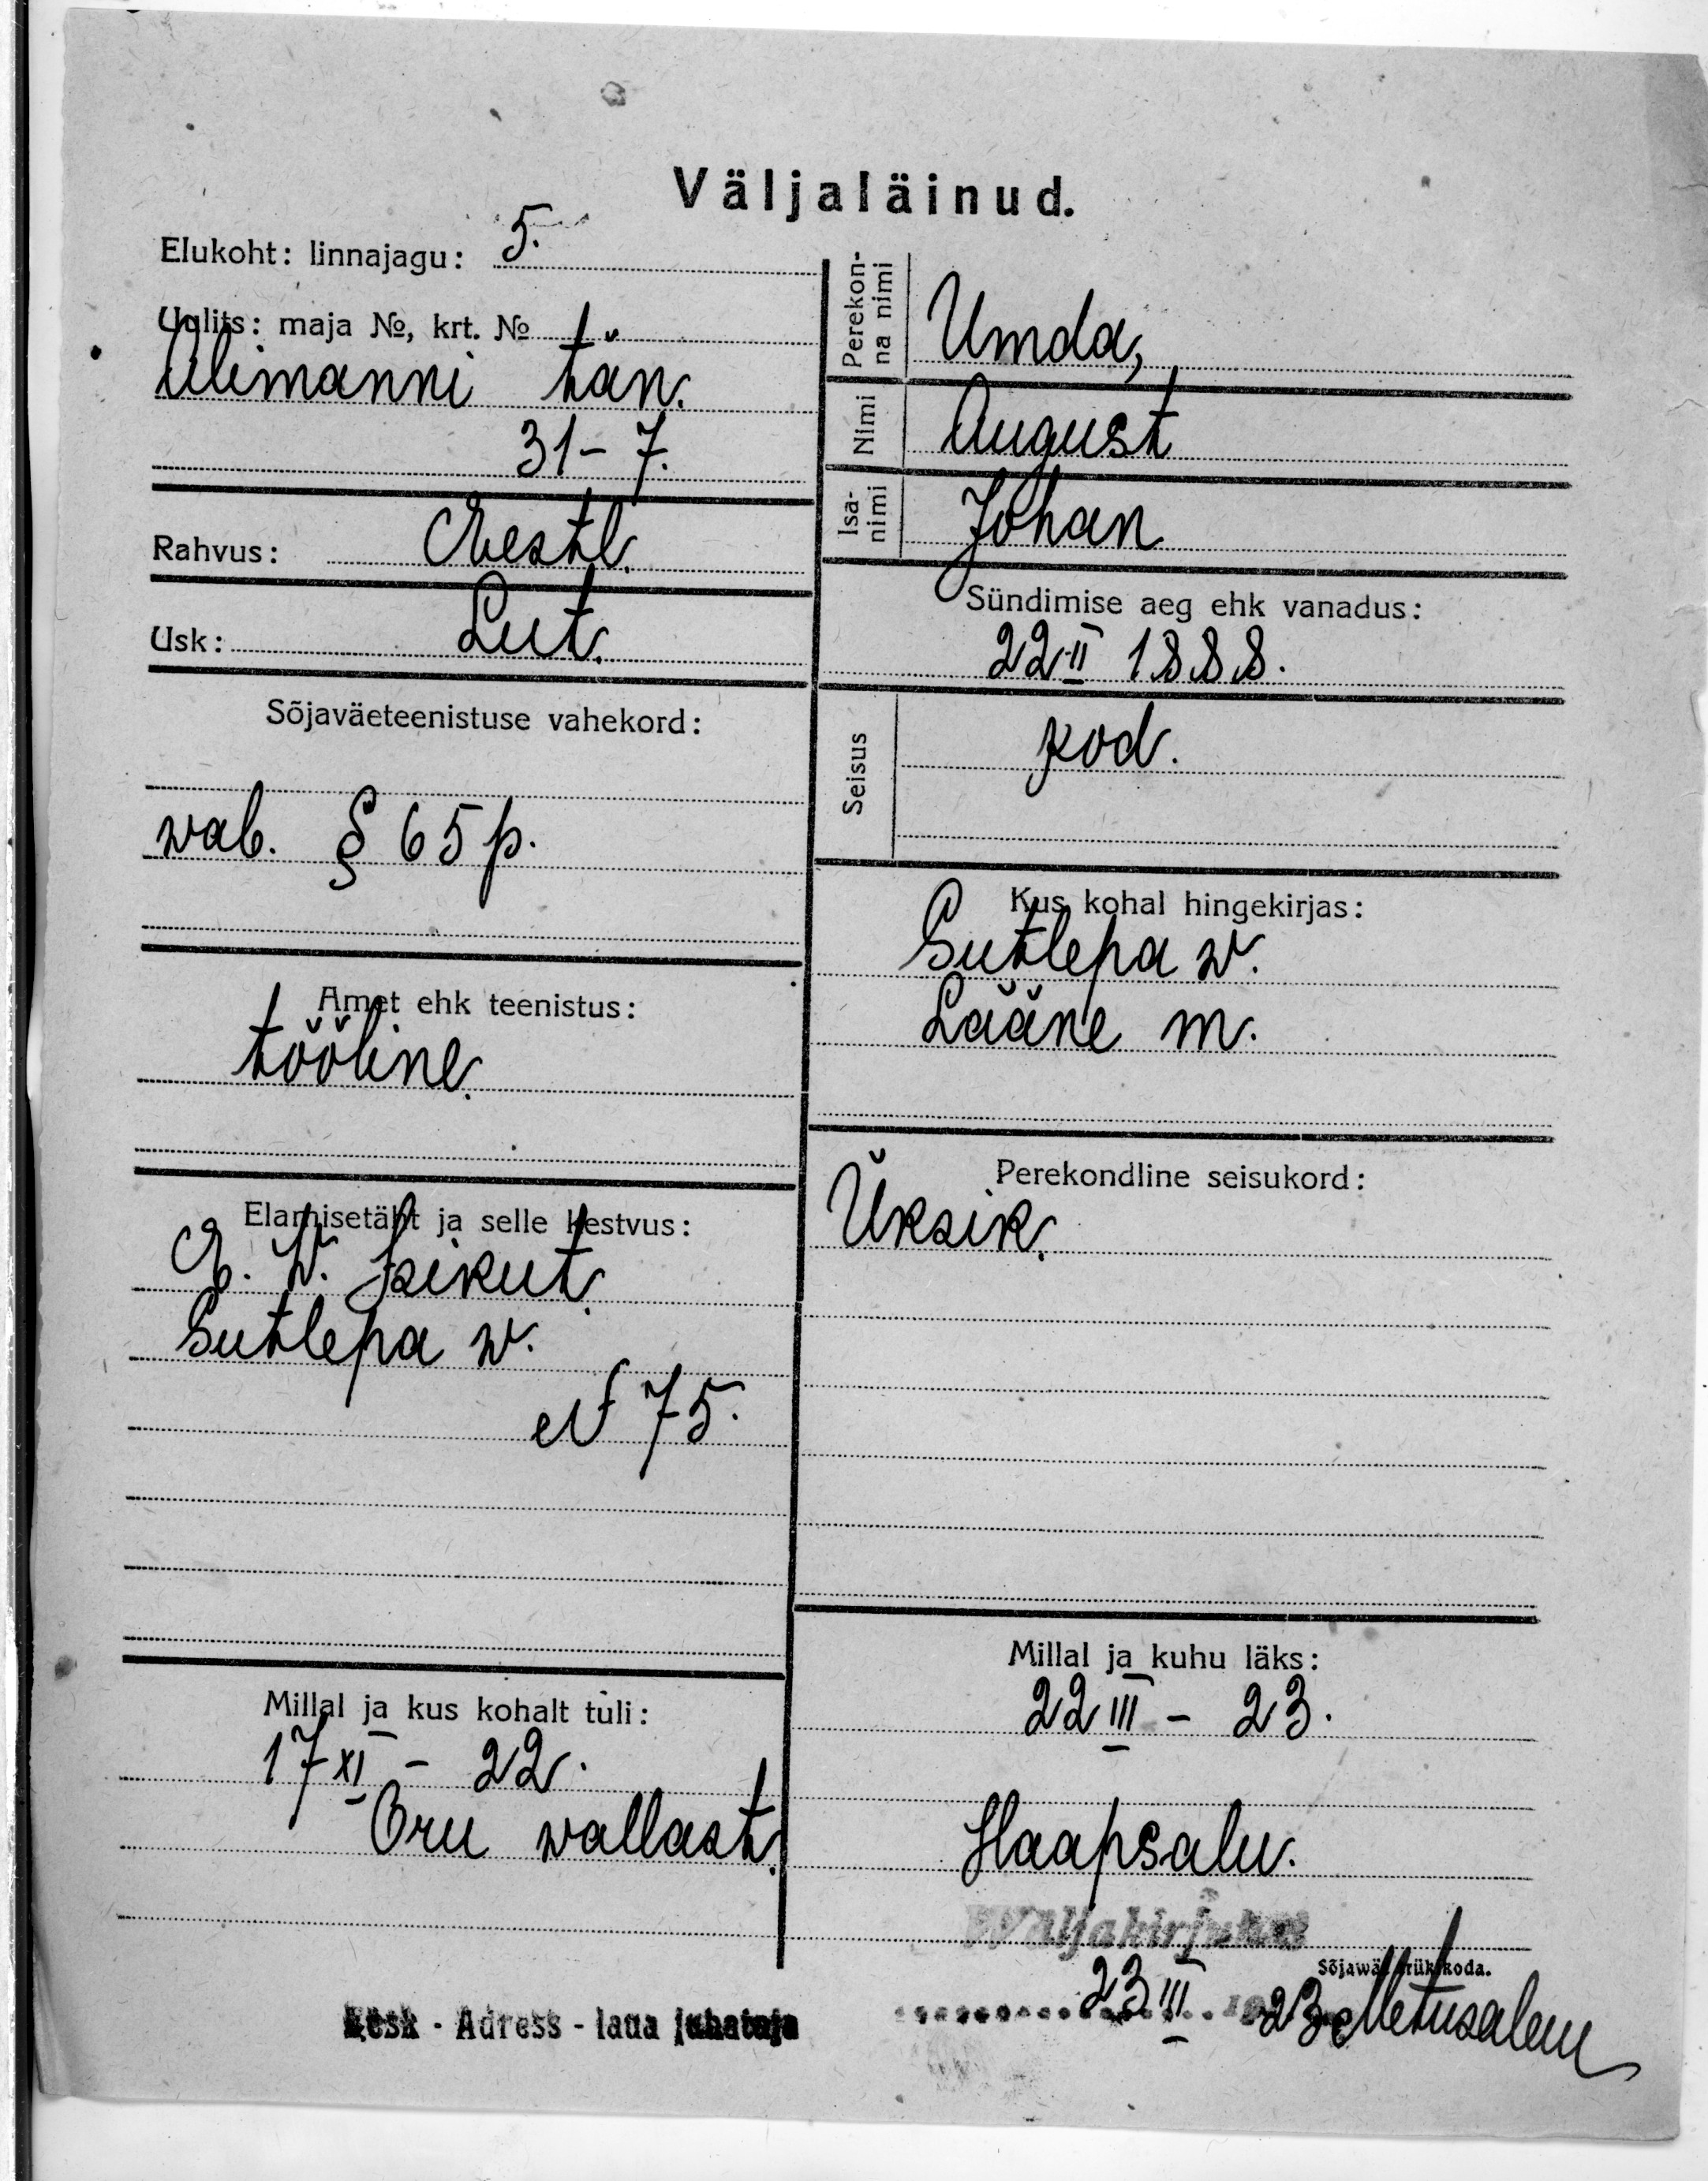 Väljaläinud.
Elukoht: linnajagu: 5.
Uulits: maja №, krt. №
Ülimanni tän.
31-7.
Rahvus: Eestl.
Usk: Lut.
Sõjaväeteenistuse vahekord:
wab. § 65 p.
Amet ehk teenistus:
tööline.
Elamisetäht ja selle kestvus:
E. W. Isikut.
Sutlepa w.
№ 75.
Millal ja kus kohalt tuli:
17 XI - 22.
Oru wallast.
Perekonna nimi
Umda,
Nimi August
Isanimi Johan
Sündimise aeg ehk vanadus:
22 II 1888.
Seisus kod.
Kus kohal hingekirjas:
Sutlepa w.
Lääne m.
Perekondline seisukord:
Üksik.
Millal ja kuhu läks:
22 III - 23.
Haapsalu.
Wäljakirjutud
Sõjawäe trükikoda.
23 III 1923
Metusalem
Kesk - Adress - laua juhataja